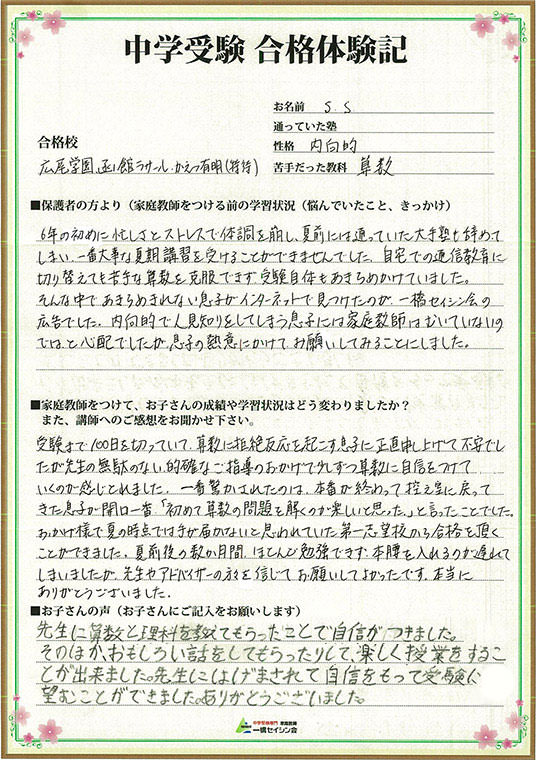 中学受験 合格体験記
お名前 S.S.
通っていた塾
性格 内向的
苦手だった教科 算数
合格校
広尾学園、函館ラサール、かえつ有明(特待)
■保護者の方より（家庭教師をつける前の学習状況（悩んでいたこと、きっかけ）
6年の初めに忙しさとストレスで体調を崩し、夏前には通っていた大手塾も辞めて
しまい、一番大事な夏期講習を受けることができませんでした。自宅での通信教育に
切り替えても苦手な算数を克服できず受験自体もあきらめかけていました。
そんな中であきらめきれない息子がインターネットで見つけたのが、一橋セイシン会の
広告でした。内向的で人見知りをしてしまう息子には家庭教師はむいていないの
では、と心配でしたが、息子の熱意にかけてお願いしてみることにしました。
■家庭教師をつけて、お子さんの成績や学習状況はどう変わりましたか？
また、講師へのご感想をお聞かせ下さい。
受験まで100日を切っていて、算数に拒絶反応を起こす息子に正直申し上げて不安でし
たが先生の無駄のない、的確なご指導のおかげで少しずつ算数に自信をつけて
いくのが感じとれました。一番驚かされたのは、本番が終わって控え室に戻って
きた息子が開口一番、「初めて算数の問題を解くのが楽しいと思った」と言ったことでした。
おかげ様で夏の時点では手が届かないと思われていた第一志望校から合格を頂く
ことができました。夏前後の数か月間、ほとんど勉強できず、本腰を入れるのが遅れて
しまいましたが、先生やアドバイザーの方々を信じてお願いしてよかったです。本当に
ありがとうございました。
■お子さんの声（お子さんにご記入をお願いします）
先生に算数と理科を教えてもらったことで自信がつきました。
そのほか、おもしろい話をしてもらったりして、楽しく授業をするこ
とが出来ました。先生にはげまされて自信をもって受験に
望むことができました。ありがとうございました。
中学受験専門 家庭教師
一橋セイシン会